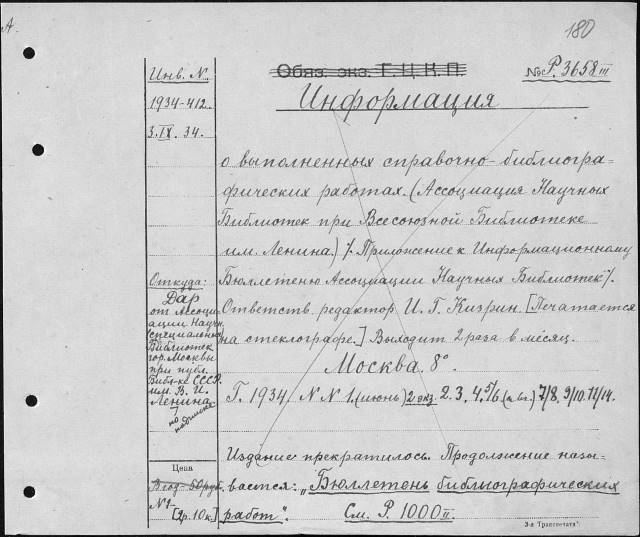 А.
180
Инв. №
1934-412
3.IX.34.
Обяз. экз. Г.Ц.К.П.
№ Р. 3658 III
Информация
о выполненных справочно-библиогра=
фических работах. (Ассоциация Научных
Библиотек при Всесоюзной Библиотеке
им. Ленина.) /. Приложение к Информационному
Бюллетеню Ассоциации Научных Библиотек /.
Ответств. редактор И. Г. Кизрин. [Печатается
на стеклографе.] Выходит 2 раза в месяц.
Москва. 8°
Г. 1934 N N 1. (июнь) 2 экз. 2. 3. 4. 5/6 (авг.) 7/8. 9/10. 11/14.
Издание прекратилось. Продолжение назы-
вается: "Бюллетень библиографических
работ". См. Р. 1000 II.
Откуда:
Дар
от Ассоци-
ации Научн.
(специальных)
Библиотек
гор. Москвы
при публ.
Библ-ке СССР
им. В. И.
Ленина
по
подписке
Цена
В год - 50 руб.
№ 1-
[2р. 10к.]
3-я Транспечати